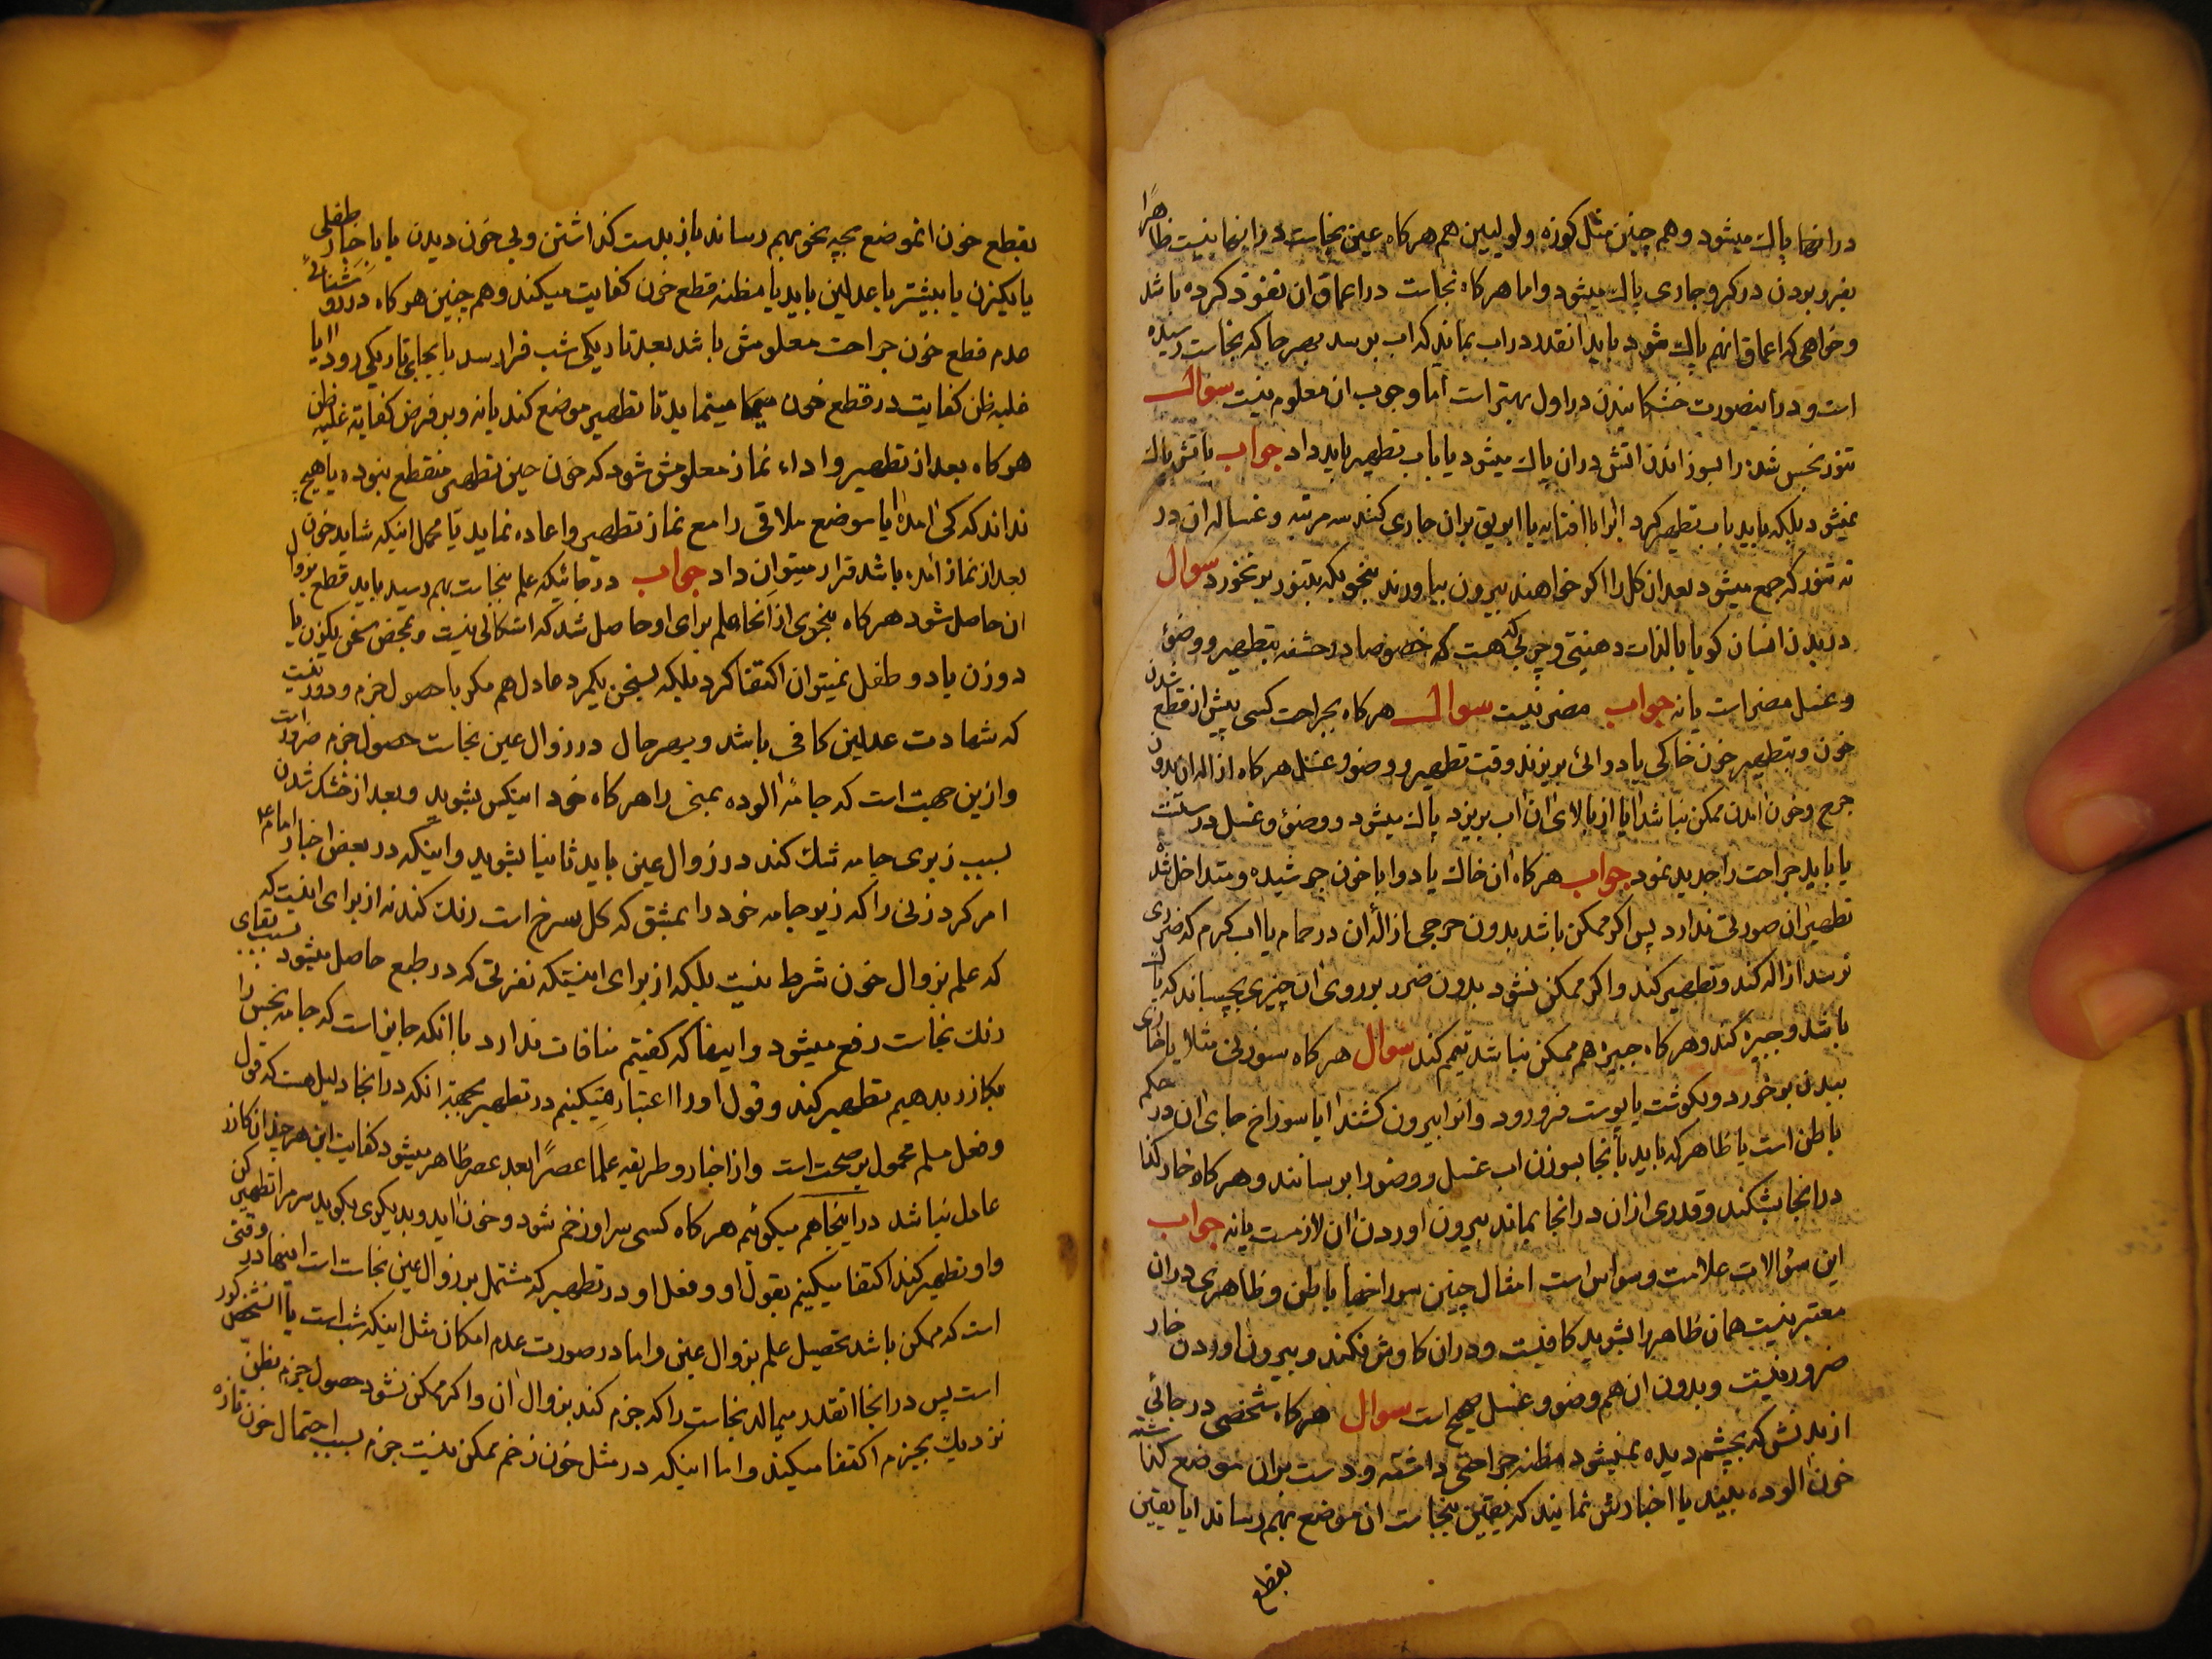 در آنها پاک میشود و هم چنین مثل کوزه و لولیین هم هرگاه عین نجاست در اینها نیست ظاهرا
بفرو بردن در کر و جاری پاک میشود و اما هرگاه نجاست در اعماق ان نفوذ کرده باشد
و خواهی که اعماق انهم پاک شود باید انقدر در اب بماند که اب برسد بهر جا که نجاست رسیده
است و در اینصورت خشکانیدن در اول بهتر است اما وجوب ان معلوم نیست سوال
تنور نجس شده را بسوزانیدن اتش در ان پاک میشود یا باب تطهیر باید داد جواب باتش پاک
نمیشود بلکه باید باب تطهیر کرد اب را با افتابه یا ابریق بران جاری کنند سه مرتبه و غساله ان در
ته تنور که جمع میشود بعد ان کل را اگر خواهند بیرون بیاورند بنحویکه بتنور بر نخورد سوال
در بدن انسان گویا بالذات دهنیتی و چربی هست که خصوصا در حشفه بتطهیر و وضوء
و غسل مضر است یا نه جواب مضر نیست سوال هرگاه بجراحت کسی پیش از قطع شدن
خون و بتطهیر خون خاکی یا دوائی بریزند وقت تطهیر و وضو و غسل هرگاه ازاله ان بدون
جرح و خون امدن ممکن نباشد ایا از بالای ان اب بریزد پاک میشود و وضوء و غسل درست
یا باید جراحت را جدید نمود جواب هرگاه ان خاک یا دوا با خون جوشیده و متداخل شد
تطهیر ان صورتی ندارد پس اگر ممکن باشد بدون حرجی ازاله ان در حمام یا اب گرم که ضرری
نرسد ازاله کند و تطهیر کند و اگر ممکن نشود بدون ضرر بر روی ان چیزی بچسباند که پاک
باشد و جبیره کند و هرگاه جبیره هم ممکن نباشد تیمم کند سوال هرگاه سوزنی مثلا یا خاری
ببدن بر خورد و بگوشت یا پوست فرو رود و انرا بیرون کشند ایا سوراخ جای ان در حکم
باطن است یا ظاهر که باید بانجا بسوزن اب غسل و وضو را برسانند و هرگاه خار
در انجا بشکند و قدری از ان در انجا بماند بیرون اوردن ان لازمست یا نه جواب
این سؤالات علامت وسواس است امثال چنین سوراخها باطن و ظاهری در ان
معتبر نیست همان ظاهر را بشوید کافیست و در ان کاوش نکند و بیرون اوردن خار
ضرور نیست و بدون ان هم وضو و غسل صحیح است سوال هرگاه شخصی در جائی
از بدنش که بچشم دیده نمیشود مظنه جراحتی داشته و دست بران موضع گذاشته
خون الوده بیند یا اخبارش نمایند که یقین بنجاست ان موضع بهم رساند ایا یقین
بقطع
بقطع خون انموضع بچه نحو بهم رساند باز بدست گذاشتن و بی خون دیدن یا باخبار طفلی
یا یکزن یا بیشتر یا عدلین باید یا مظنه قطع خون کفایت میکند و هم چنین هرگاه در روشنائی
عدم قطع خون جراحت معلومش باشد بعد تاریکی شب فرا رسد یا بجای تاریکی رود ایا
غلبه ظن کفایت در قطع خون مینماید تا تطهیر موضع کند یا نه و بر فرض کفایة غلبه ظن
هرگاه بعد از تطهیر و اداء نماز معلومش شود که خون حین تطهیر منقطع نبوده یا هیچ
نداند که کی امده ایا موضع ملاقی را مع نماز تطهیر و اعاده نماید یا محمل اینکه شاید خون
بعد از نماز امده باشد قرار میتوان داد جواب در جائیکه علم بنجاست بهم رسید باید قطع بزوال
ان حاصل شود هرگاه بنحوی از انحا علم برای او حاصل شد که اشکالی نیست و بمحض سخن یکزن یا
دو زن یا دو طفل نمیتوان اکتفا کرد بلکه بسخن یکمرد عادل هم مگر با حصول جزم و دور نیست
که شهادت عدلین کافی باشد و بهر حال در زوال عین نجاست حصول جزم ضرور است
و از این جهت است که جامه الوده بمنی را هرگاه خود اینکس بشوید و بعد از خشک شدن
بسبب زبری جامه شک کند در زوال عین باید ثانیا بشوید و اینکه در بعض اخبار امام ع
امر کرد زنی را که زیر جامه خود را بمشق که گل سرخ است رنگ کند نه از برای اینست که
که علم بزوال خون شرط نیست بلکه از برای اینستکه نفرتی که در طبع حاصل میشود بسبب بقای
رنگ نجاست رفع میشود و اینها که گفتیم منافات ندارد با انکه جایز است که جامه نجس را
بگازر بدهیم تطهیر کند و قول او را اعتبار میکنیم در تطهیر بجهة انکه در انجا دلیل هست که قول
و فعل مسلم محمول بر صحت است و از اخبار و طریقه علما عصرا بعد عصر ظاهر میشود کفایت این هر چند ان گازر
عادل نباشد در اینجا هم میگوئیم هرگاه کسی سر او زخم شود و خون اید و بدیگری بگوید سر مرا تطهیر کن
و او تطهیر کند اکتفا میکنیم بقول او و فعل او در تطهیر که مشتمل بر زوال عین نجاست است اینها در وقتی
است که ممکن باشد تحصیل علم بزوال عین و اما در صورت عدم امکان مثل اینکه شب است یا انشخص کور
است پس در انجا انقدر میمالد نجاست را که جزم کند بزوال ان و اگر ممکن نشود حصول جزم بظن
نزدیک بجزم اکتفا میکند و اما اینکه در مثل خون زخم ممکن نیست جزم بسبب احتمال خون تازه